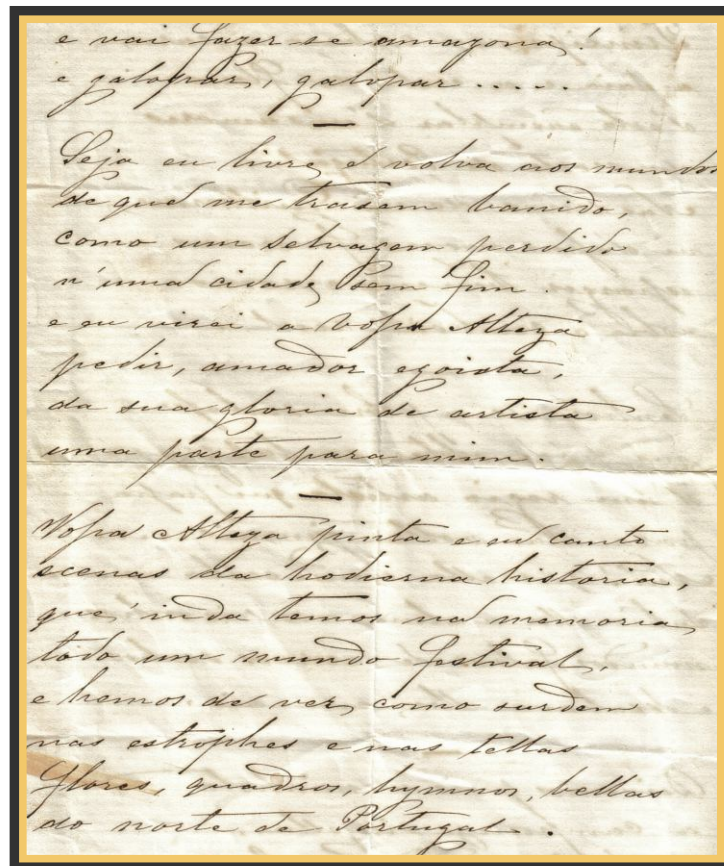 e vai fazer-se amazona!
e galopar, galopar.....
Seja eu livre, e volva aos mundos
de que me trazem banido,
como um selvagem perdido
n'uma cidade sem fim.
e eu virei a Vossa Alteza
pedir, amador egoista,
da sua gloria de artista
uma parte para mim.
Vossa Alteza pinta e eu canto
scenas da hodierna historia,
que, inda temos na memoria
todo um mundo festival,
e hemos de ver, como surdem
nas estrophes e nas tellas
flores, quadros, hymnos, bellas
do norte de Portugal.